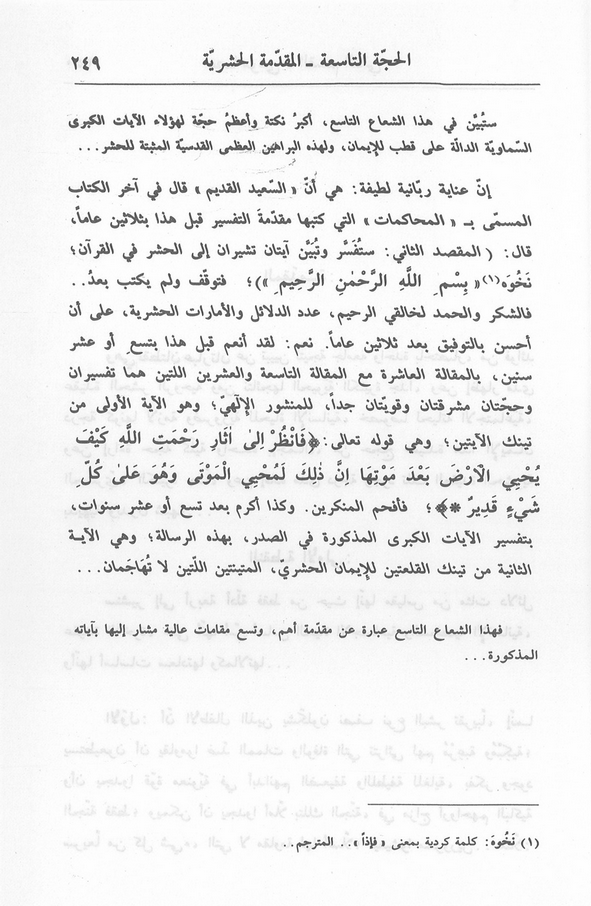 الحجّة التاسعة ـ المقدّمة الحشريّة ٢٤٩
ستُبيَّن في هذا الشعاع التاسع، أكبرُ نكتة وأعظمُ حجّة لهؤلاء الآيات الكبرى
السّماويّة الدالّة على قطب للإيمان، ولهذه البراهين العظمى القدسيّة المثبتة للحشر...
إنّ عناية ربّانية لطيفة: هي أنّ «السّعيد القديم» قال في آخر الكتاب
المسمّى بـ «المحاكمات» التي كتبها مقدّمةَ التفسير قبل هذا بثلاثين عاماً،
قال: (المقصد الثاني: ستُفَسَّر وتُبيَّن آيتان تشيران إلى الحشر في القرآن؛
نَخُوَه(١)«بِسْمِ اللَّهِ الرَّحْمٰنِ الرَّحِيمِ»)؛ فتوقّف ولم يكتب بعدُ..
فالشكر والحمد لخالقي الرحيم، عدد الدلائل والأمارات الحشرية، على أن
أحسن بالتوفيق بعد ثلاثين عاماً. نعم: لقد أنعم قبل هذا بتسع أو عشر
سنين، بالمقالة العاشرة مع المقالة التاسعة والعشرين اللتين هما تفسيران
وحجّتان مشرقتان وقويّتان جداً، للمنشور الإلٓهيّ؛ وهو الآية الأولى من
تينك الآيتين؛ وهي قوله تعالى:﴿فَانْظُرْ اِلىٰ اٰثَارِ رَحْمَتِ اللَّهِ كَيْفَ
يُحْيِي الْاَرْضَ بَعْدَ مَوْتِهَا اِنَّ ذٰلِكَ لَمُحْيِي الْمَوْتٰى وَهُوَ عَلىٰ كُلِّ
شَيْءٍ قَدِيرٌ *﴾؛ فأفحم المنكرين. وكذا أكرم بعد تسع أو عشر سنوات،
بتفسير الآيات الكبرى المذكورة في الصدر، بهذه الرسالة؛ وهي الآية
الثانية من تينك القلعتين للإيمان الحشريّ، المتينتين اللّتين لا تُهَاجَمان...
فهذا الشعاع التاسع عبارة عن مقدّمة أهم، وتسع مقامات عالية مشار إليها بآياته
المذكورة...
(١) نَخُوَه: كلمة كردية بمعنى «فإذاً».. المترجم..